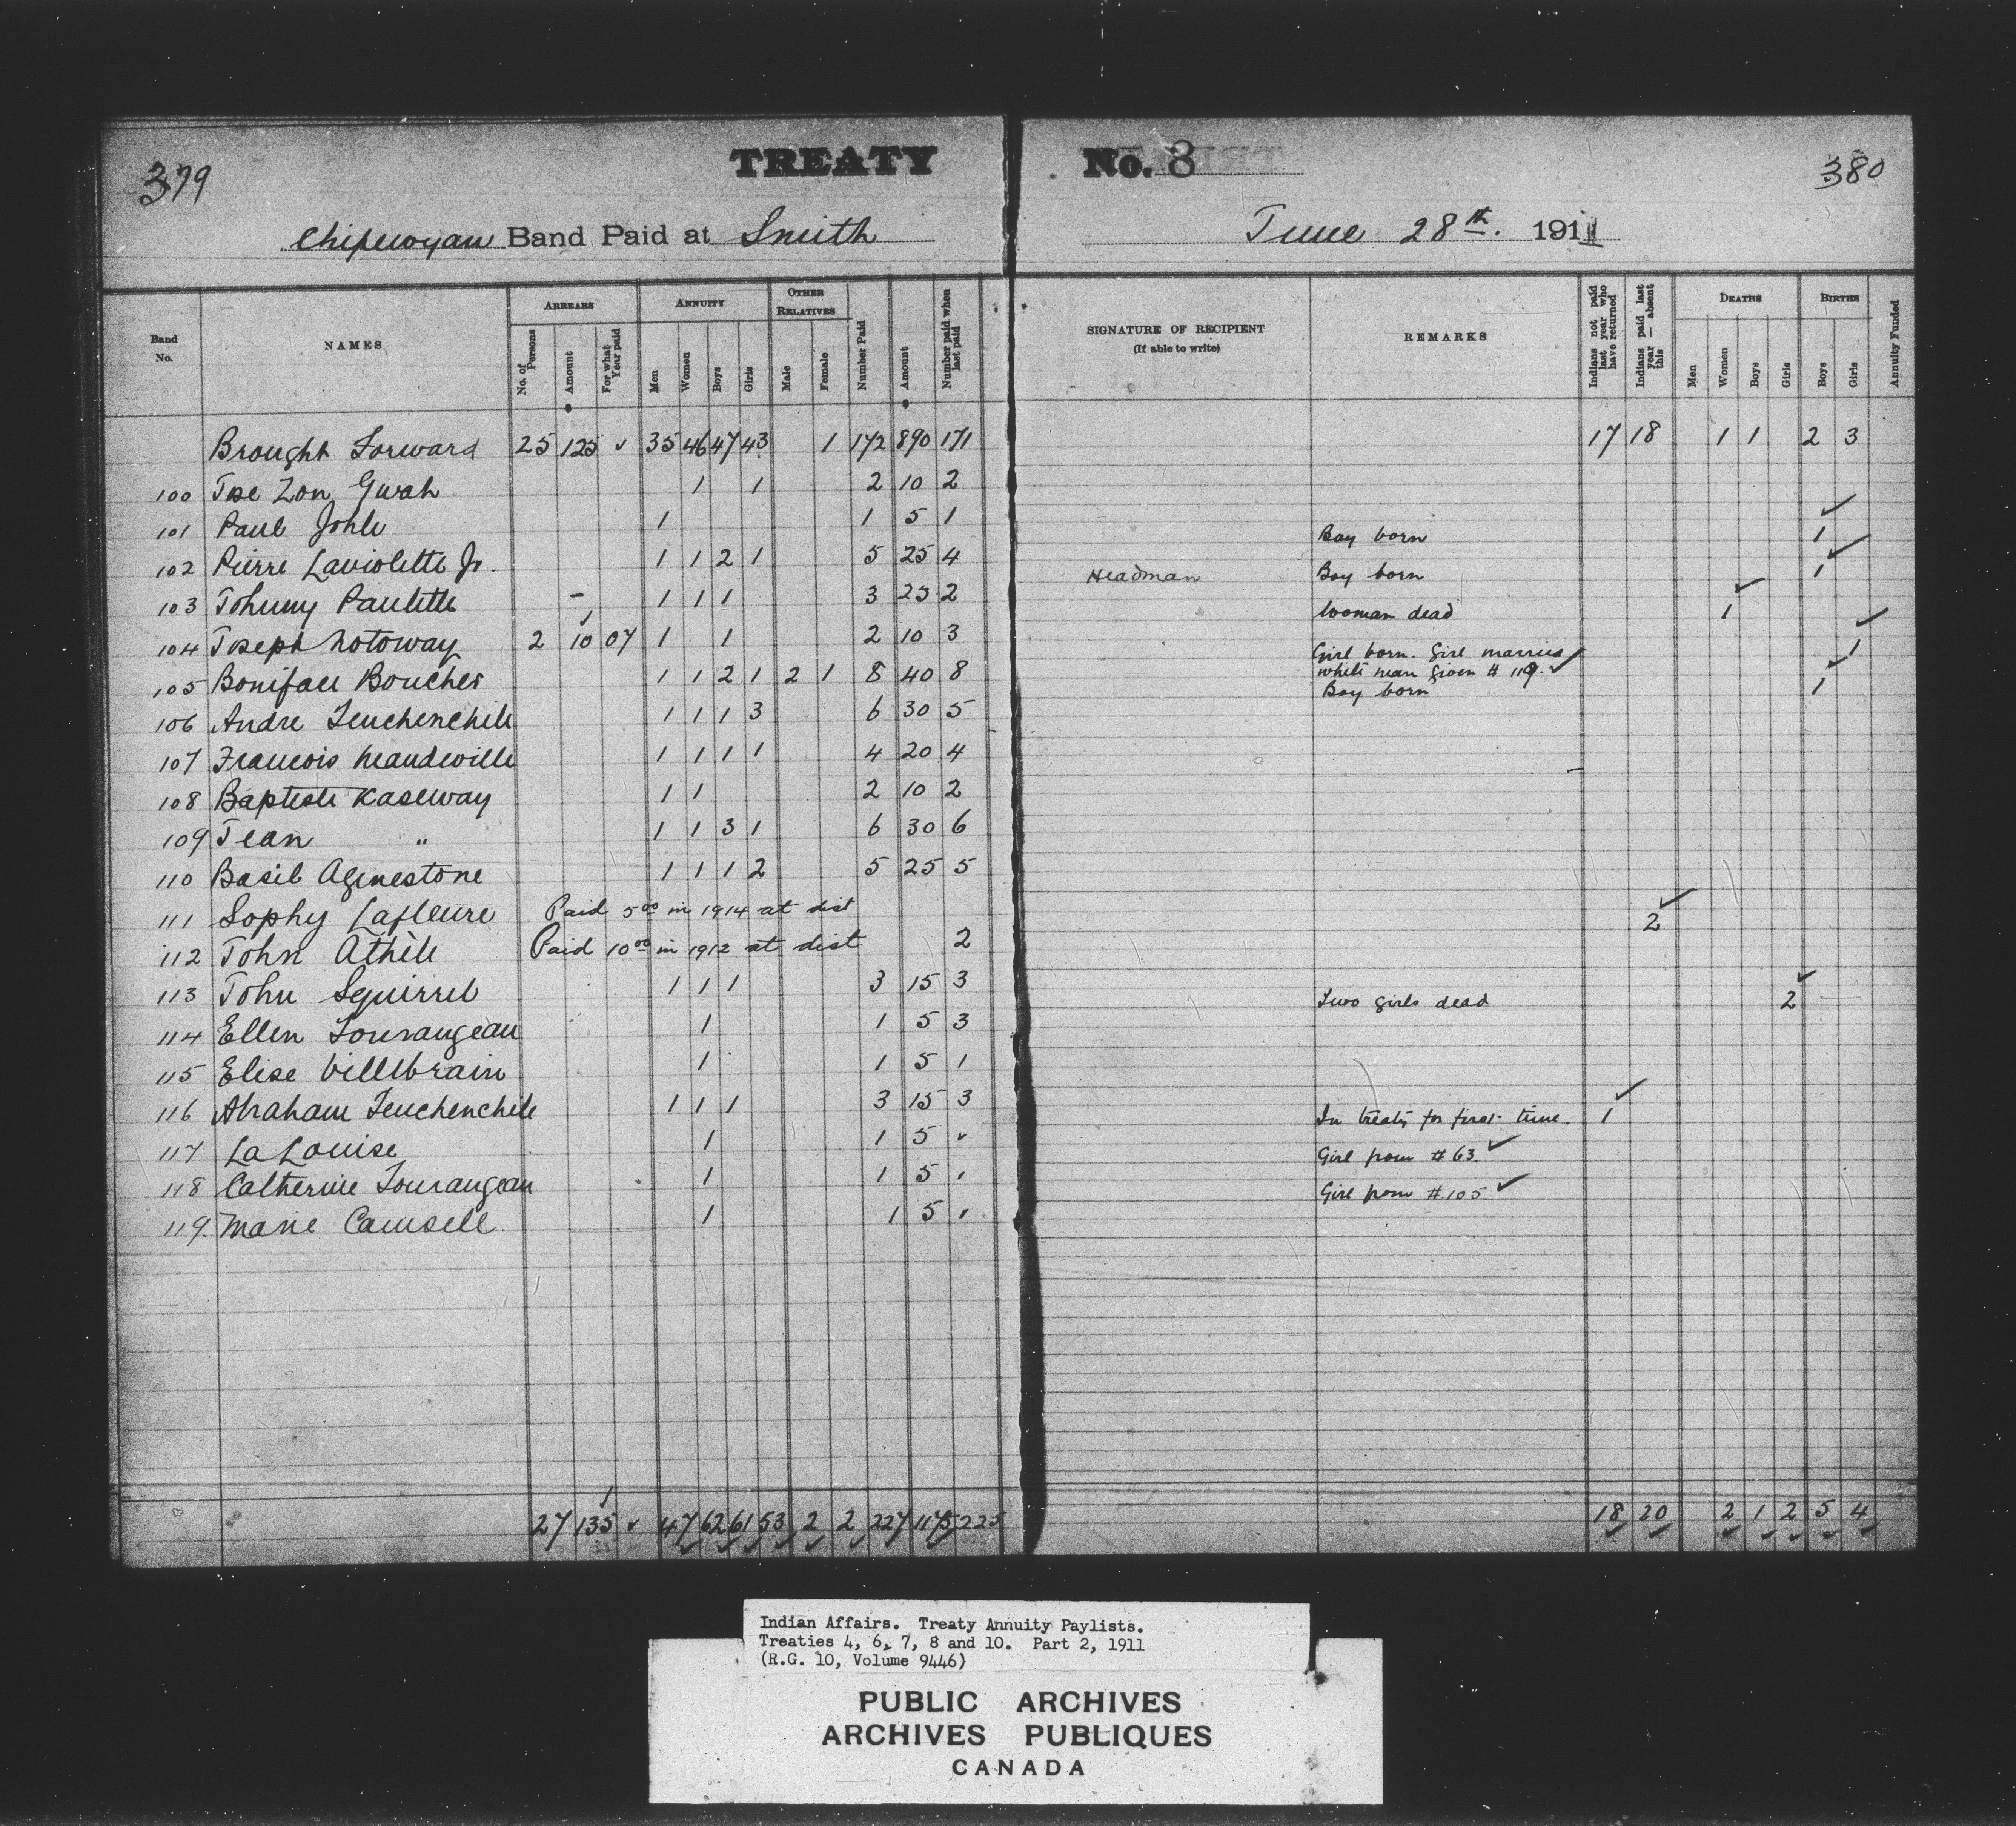 379
TREATY
No. 8
380
Chipewyan Band Paid at Smith
June 28th. 1911
Band No.
NAMES
ARREARS
No. of Persons
Amount
For what Year paid
ANNUITY
Men
Women
Boys
Girls
OTHER RELATIVES
Male
Female
Number Paid
Amount
Number paid when last paid
SIGNATURE OF RECIPIENT
(If able to write)
REMARKS
Indians not paid last year who have returned
Indians paid last year — absent this
DEATHS
Men
Women
Boys
Girls
BIRTHS
Boys
Girls
Annuity Funded
Brought Forward 25 125 ✓ 35 46 47 43 1 172 890 171 17 18 1 1 2 3
100 Tse Zon Gwah 1 1 2 10 2
101 Paul Johle 1 1 5 1
102 Pierre Laviolette Jr. 1 1 2 1 5 25 4 Boy born 1 ✓
103 Johnny Paulette – 1 1 1 3 25 2 Headman Boy born 1 ✓
104 Joseph Notoway 2 10 07 1 1 2 10 3 Woman dead 1 ✓
105 Boniface Boucher 1 1 2 1 2 1 8 40 8 Girl born. Girl married 1 ✓
white man given # 119. ✓
106 Andre Teuchenchile 1 1 1 3 6 30 5 Boy born 1 ✓
107 Francois Mandeville 1 1 1 1 4 20 4
108 Baptiste Kaseway 1 1 2 10 2
109 Jean " 1 1 3 1 6 30 6
110 Basil Agenestone 1 1 1 2 5 25 5
111 Sophy Lafleure Paid 5 00 in 1914 at dist
112 John Athile Paid 10 00 in 1912 at dist 2 2 ✓
113 John Squirrel 1 1 1 3 15 3
114 Ellen Tourangeau 1 1 5 3 Two girls dead 2 ✓
115 Elise Villebrain 1 1 5 1
116 Abraham Teuchenchile 1 1 1 3 15 3
117 La Louise 1 1 5 ✓ In treaty for first time. 1 ✓
118 Catherine Tourangeau 1 1 5 1 Girl from # 63. ✓
119. Marie Camsell. 1 1 5 1 Girl from # 105 ✓
27 135 ✓ 47 62 61 53 2 2 227 1175 225 18 20 2 1 2 5 4
Indian Affairs. Treaty Annuity Paylists.
Treaties 4, 6, 7, 8 and 10. Part 2, 1911
(R.G. 10, Volume 9446)
PUBLIC ARCHIVES
ARCHIVES PUBLIQUES
CANADA